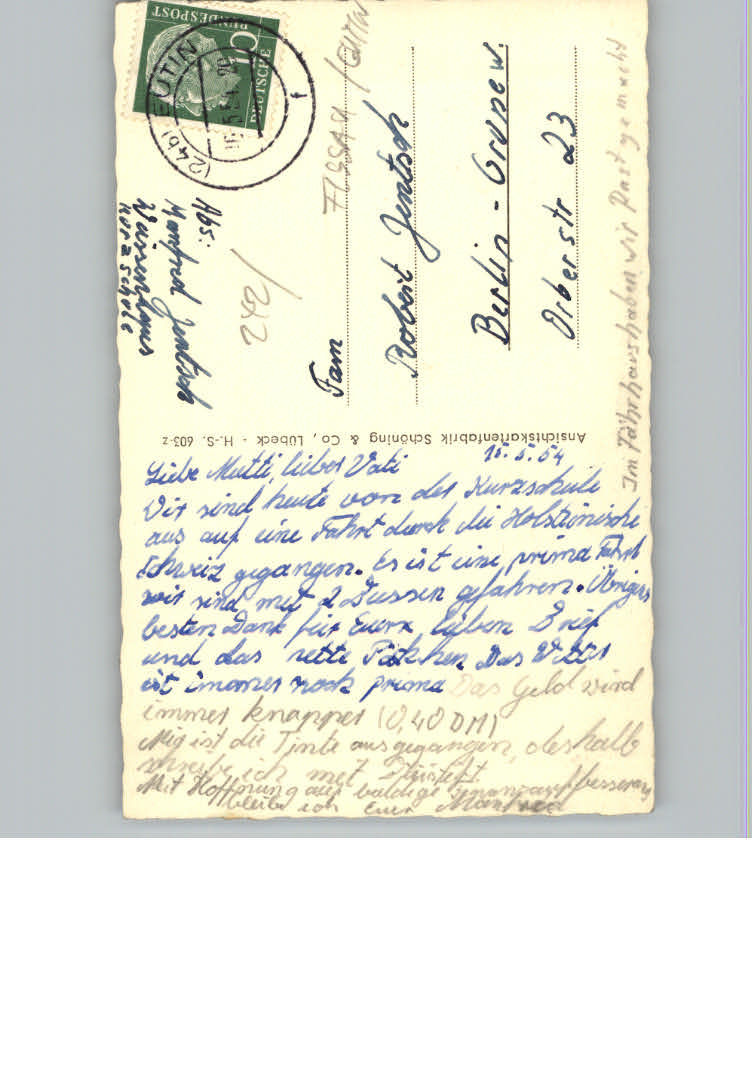 DEUTSCHE BUNDESPOST
10
(24b) EUTIN
f
FISSAU / EUTIN
Abs:
Manfred Jentsch
Weissenhaus
Kurzschule
242/
Fam
Robert Jentsch
Berlin-Grunew.
Orberstr 23
Im Fährhaus haben wir Rast gemacht
Ansichtskartenfabrik Schöning & Co., Lübeck - H.-S. 603-z
15.5.54
Liebe Mutti, lieber Vati
Wir sind heute von der Kurzschule
aus auf eine Fahrt durch die Holsteinische
Schweiz gegangen. Es ist eine prima Fahrt
wir sind mit 2 Bussen gefahren. Übrigens
besten Dank für Euern lieben Brief
und das nette Päckchen. Das Wetter
ist immer noch prima Das Geld wird
immer knapper (0,40 DM)
Mir ist die Tinte ausgegangen, deshalb
schreibe ich mit Bleistift.
Mit Hoffnung auf baldige Finanzaufbesserung
bleibe ich Euer Manfred